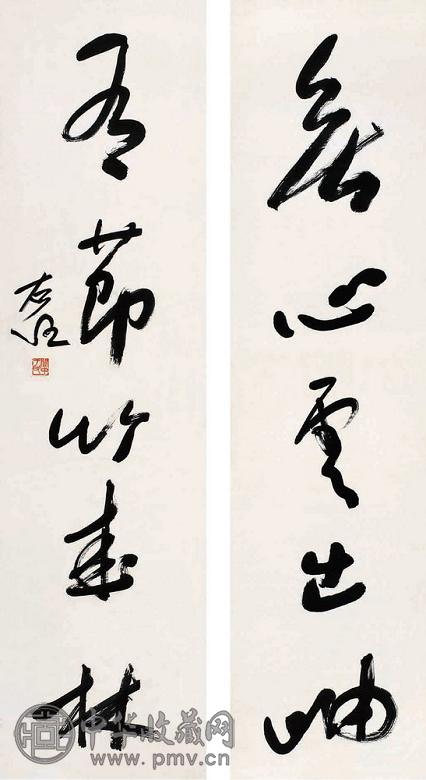 無心雲出岫
有節竹林
右任
中华收藏网
www.pmv.cn